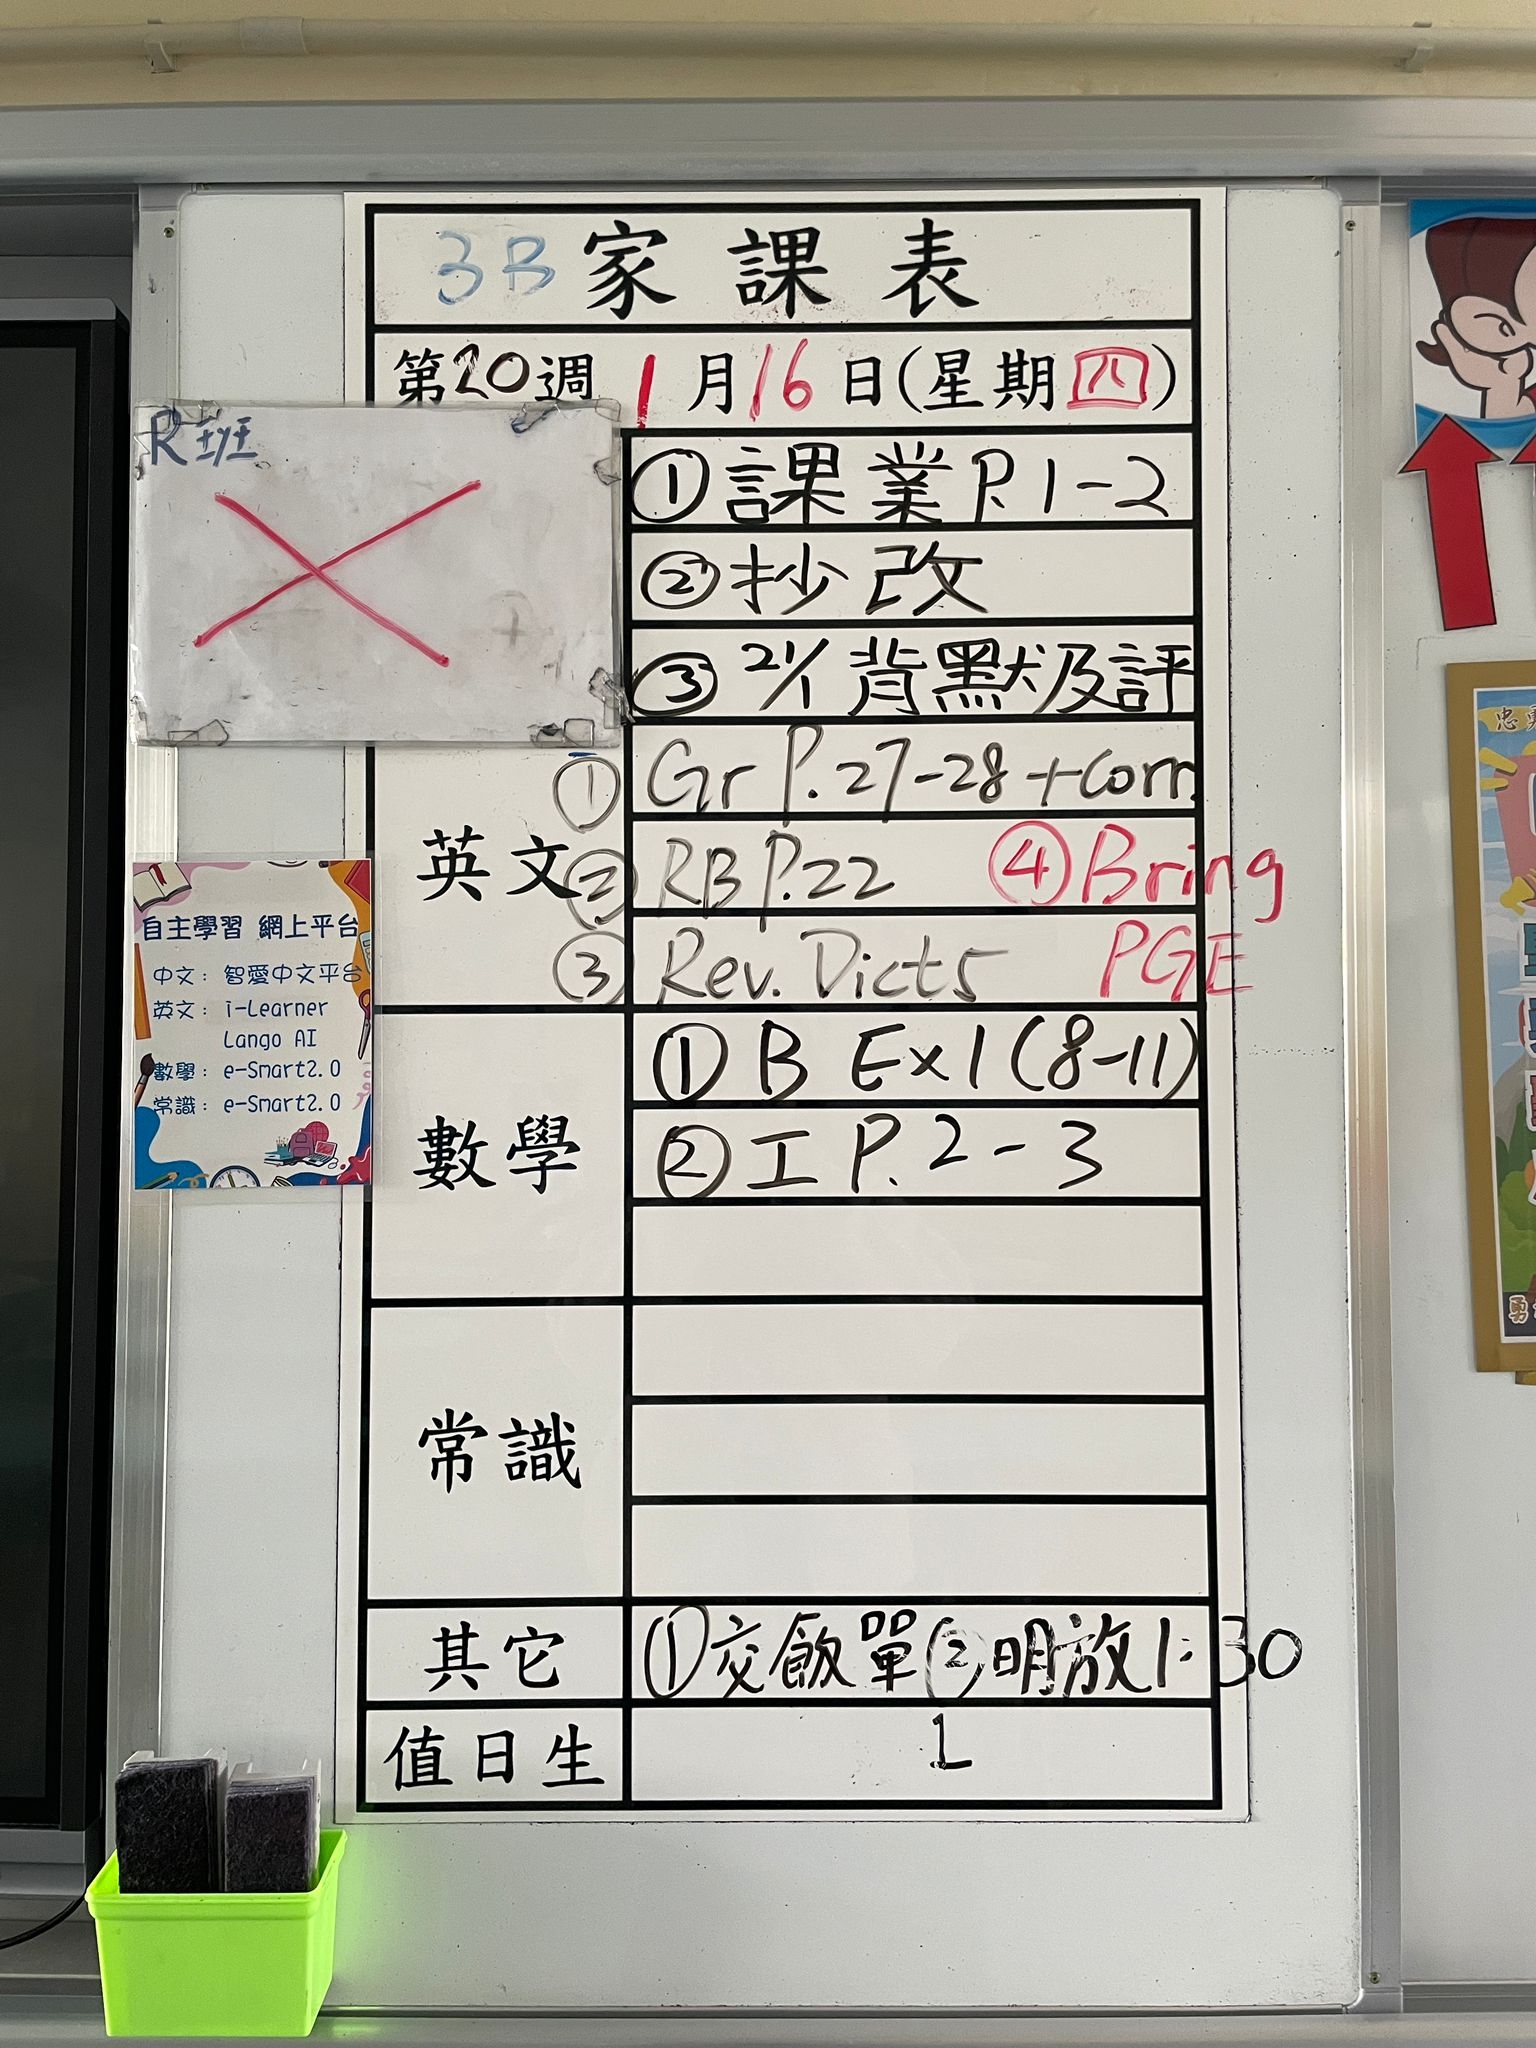 3B 家課表
第20週 1月16日(星期四)
R班
①課業 P.1-2
②抄改
③21/1 背默及評
英文
① Gr P.27-28 + corr.
② RB P.22 ④ Bring
③ Rev. Dict 5 PGE
自主學習 網上平台
中文: 智愛中文平台
英文: i-Learner
Lango AI
數學: e-Smart2.0
常識: e-Smart2.0
數學
① B Ex1 (8-11)
② 工 P. 2-3
常識
其它
①交飯單 ②明放1:30
值日生
1